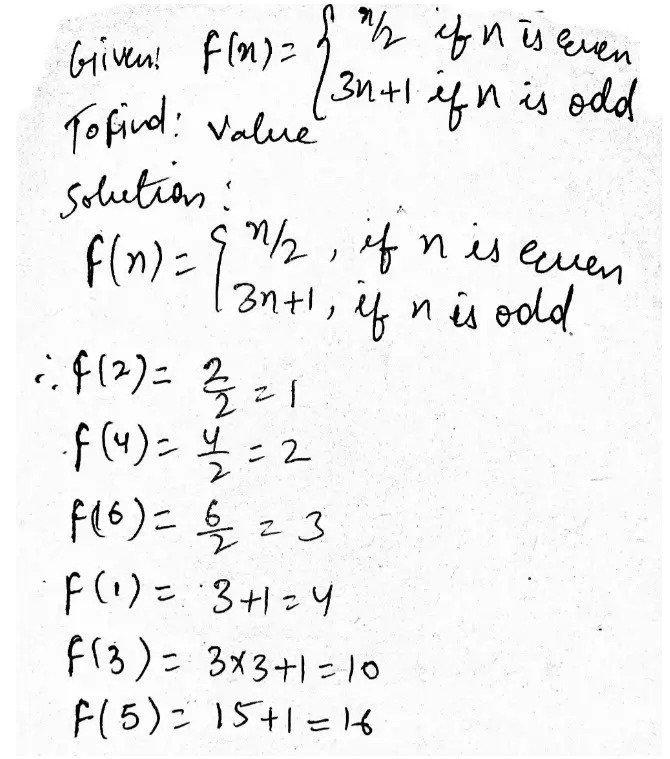 Given: f(n) = { n/2 if n is even
3n+1 if n is odd
To find: value
Solution:
f(n) = { n/2, if n is even
3n+1, if n is odd.
∴ f(2) = 2/2 = 1
f(4) = 4/2 = 2
f(6) = 6/2 = 3
f(1) = 3+1 = 4
f(3) = 3×3+1 = 10
f(5) = 15+1 = 16